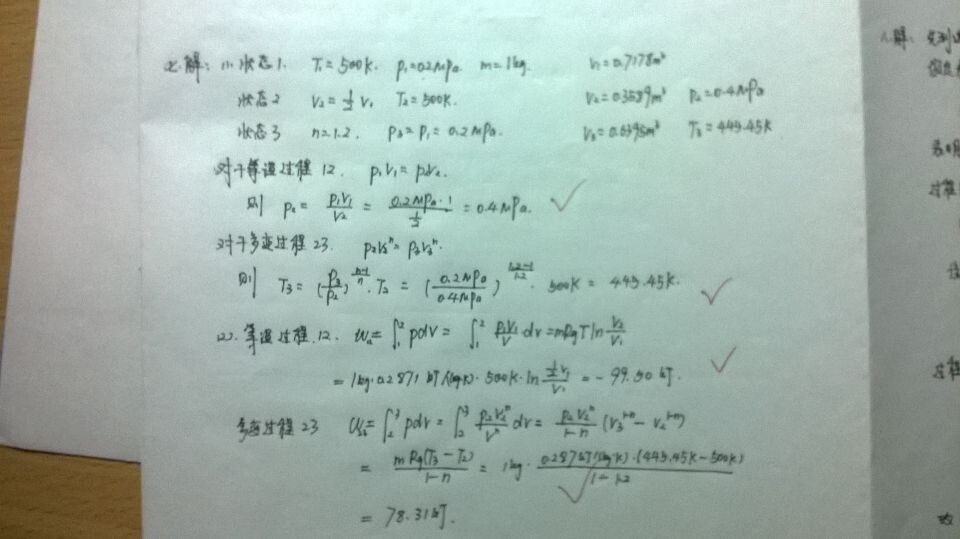 解: (1) 状态1. T₁=500K. p₁=0.2MPa m=1kg. V₁=0.7178m³
状态2 V₂=½V₁ T₂=500K. V₂=0.3589m³ p₂=0.4MPa
状态3 n=1.2. p₃=p₁=0.2MPa. T₃=445.45K
对于等温过程12. p₁V₁=p₂V₂.
则 p₂= p₁V₁/V₂ = 0.2MPa·1/½ =0.4MPa.
对于多变过程23. p₂V₂ⁿ=p₃V₃ⁿ.
则 T₃=(p₃/p₂)^((n-1)/n)·T₂ = (0.2MPa/0.4MPa)^((1.2-1)/1.2)·500K = 445.45K.
(2). 等温过程.12. = ∫₁² pdv = ∫₁² p₁V₁/V dv =mRgT ln V₂/V₁
= 1kg·0.2871 kJ/(kg·K)·500K·ln ½V₁/V₁ = -99.50 kJ.
多变过程23 = ∫₂³ pdv = ∫₂³ p₂V₂ⁿ/Vⁿ dv = p₂V₂ⁿ/(1-n) (V₃^(1-n) - V₂^(1-n))
= mRg(T₃-T₂)/(1-n) = 1kg· 0.287kJ/(kg·K)·(445.45K-500K)/(1-1.2)
= 78.31kJ.
解:
过程
过程
故